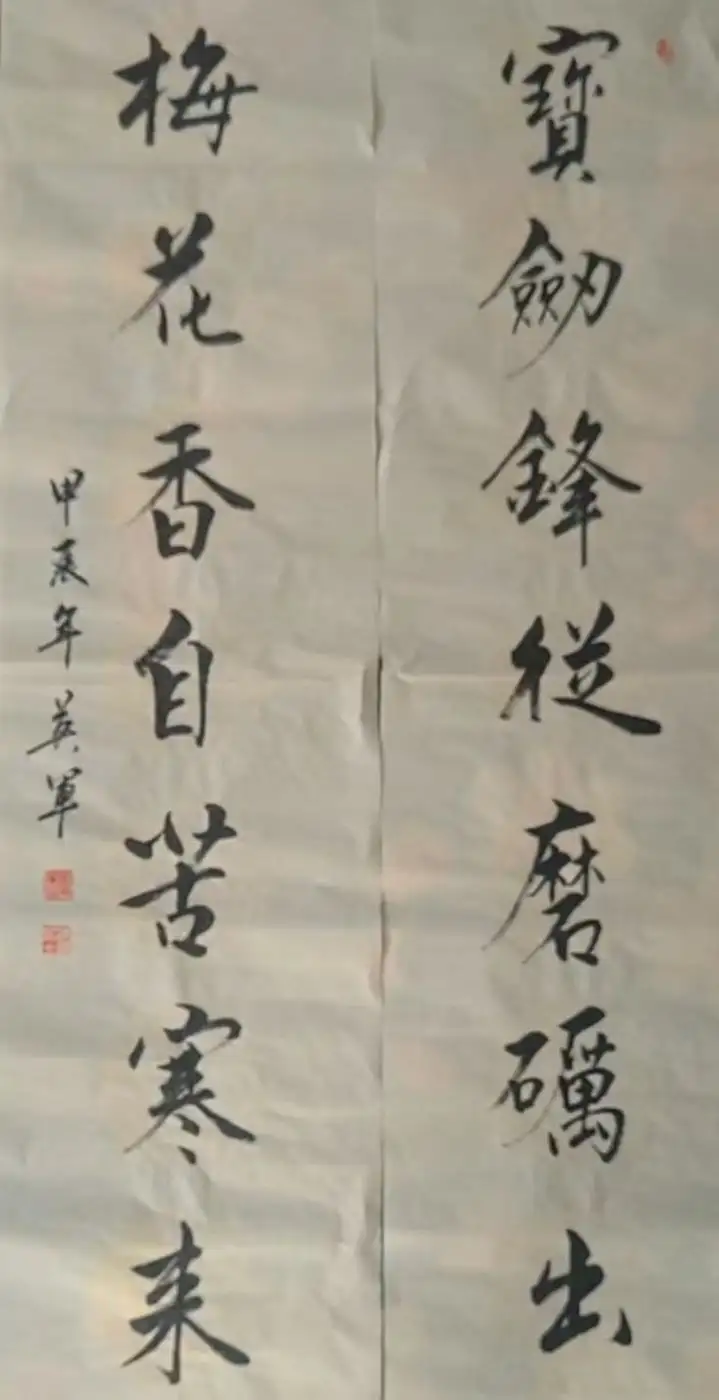 寶劒鋒從磨礪出
梅花香自苦寒来
甲辰年英軍